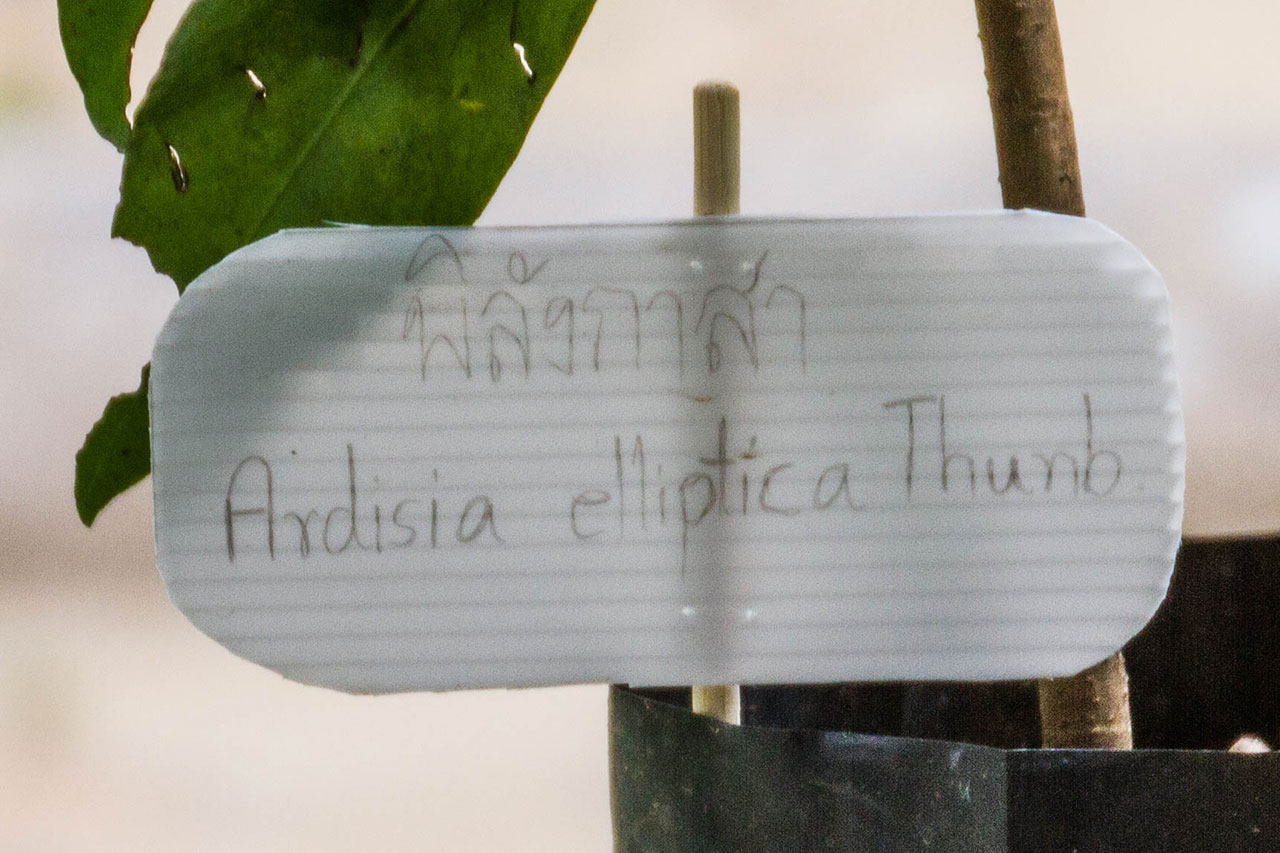 พิลังกาสา
Ardisia elliptica Thunb.